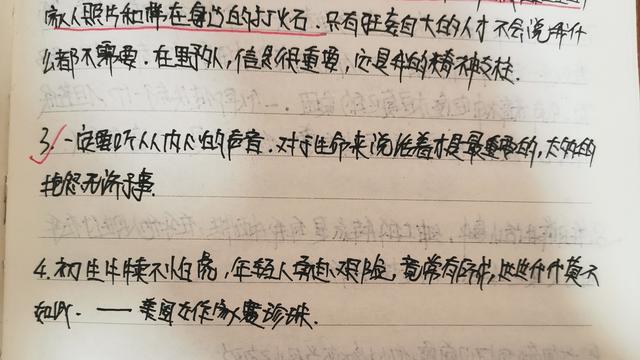 家人照片和绑在身边的打火石. 只有狂妄自大的人才不会说我什
么都不需要. 在野外, 信念很重要, 这是我的精神支柱.
3. 一定要听从内心的声音. 对于生命来说活着才是最重要的, 太多的
抱怨无济于事.
4. 初生牛犊不怕虎, 年轻人艰险, 竟常有所成, 世世代代莫不
如此. ——美国女作家赛珍珠.